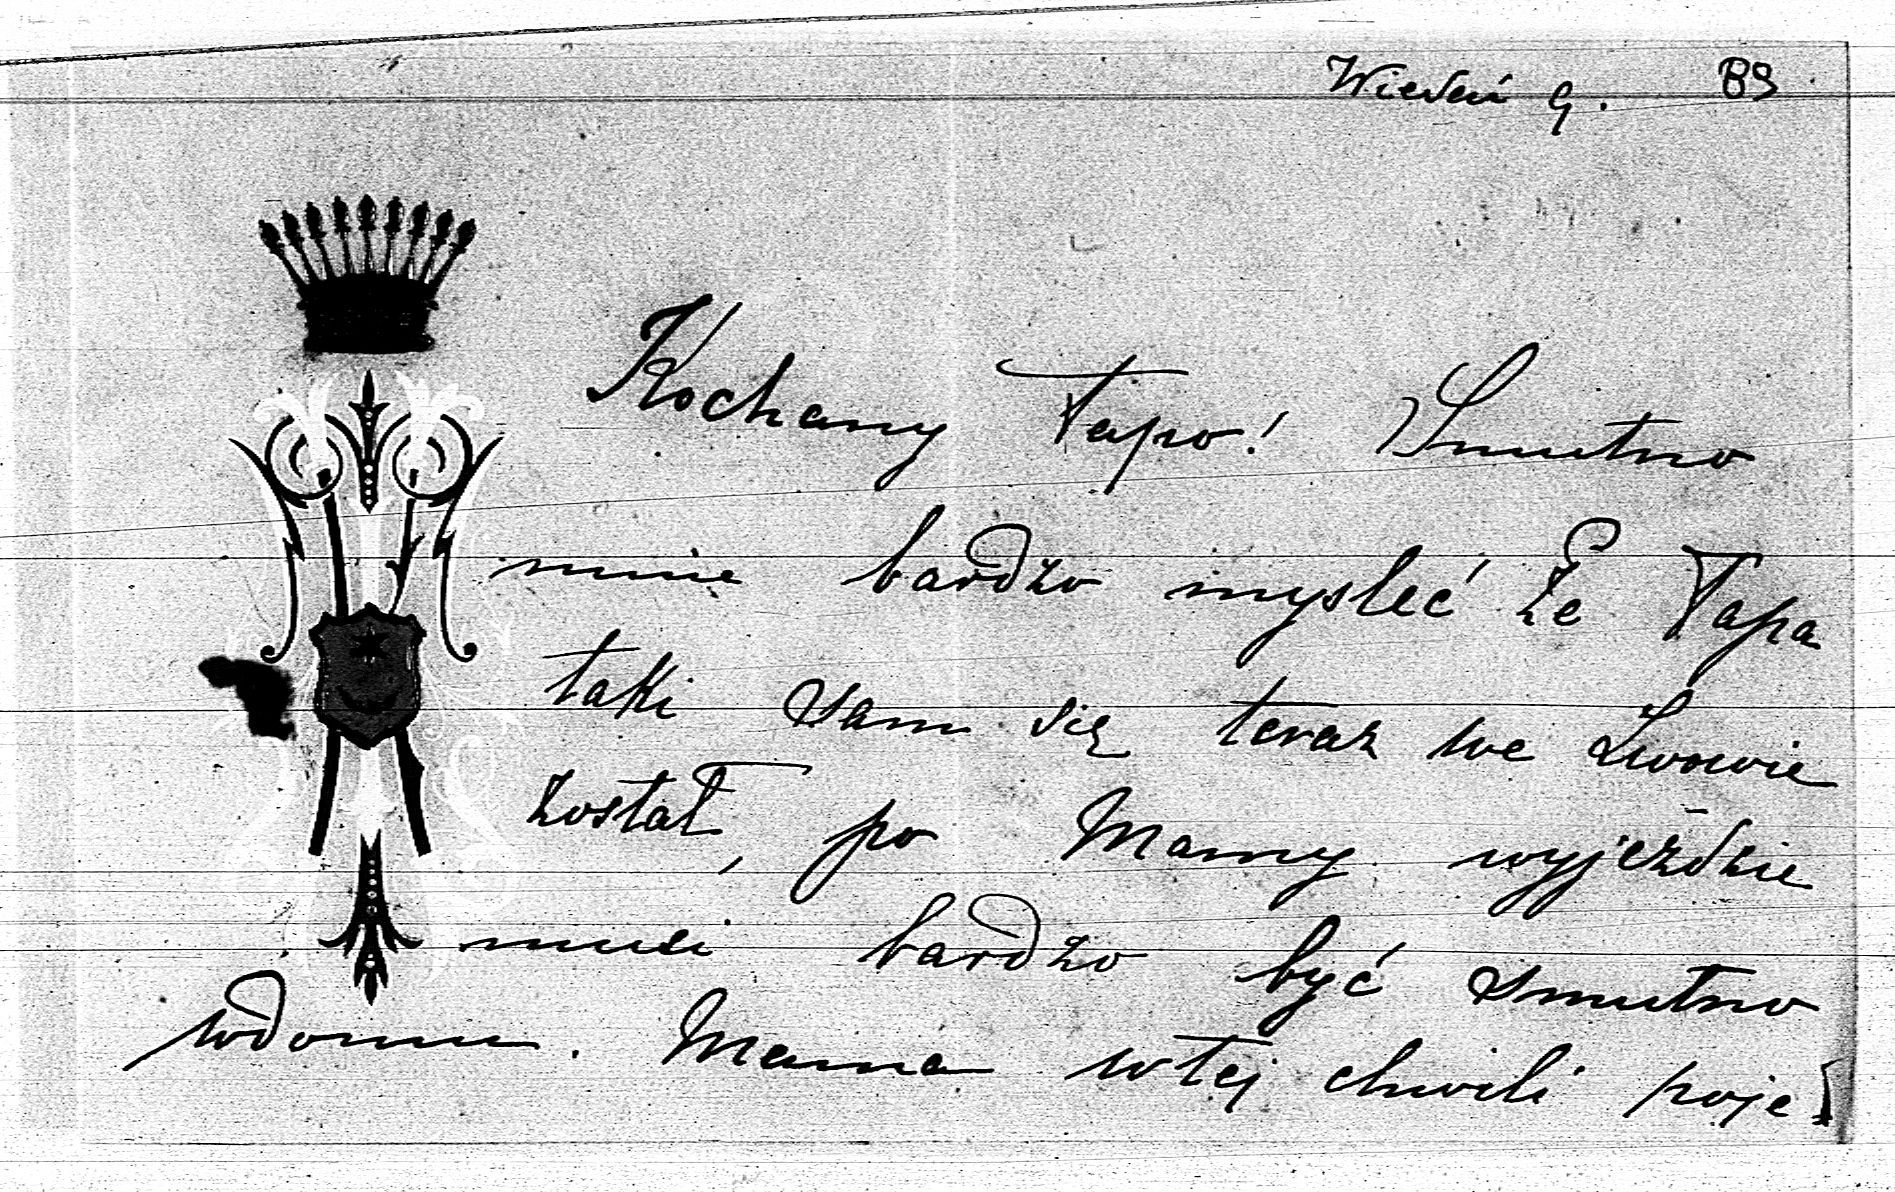 Wiedeń 9. 89
Kochany Papo! Smutno
mnie bardzo mysleć że Papa
taki sam się teraz we Lwowie
został, po Mamy wyjeździe
musi bardzo być smutno
wdomu. Mama wtej chwili poje